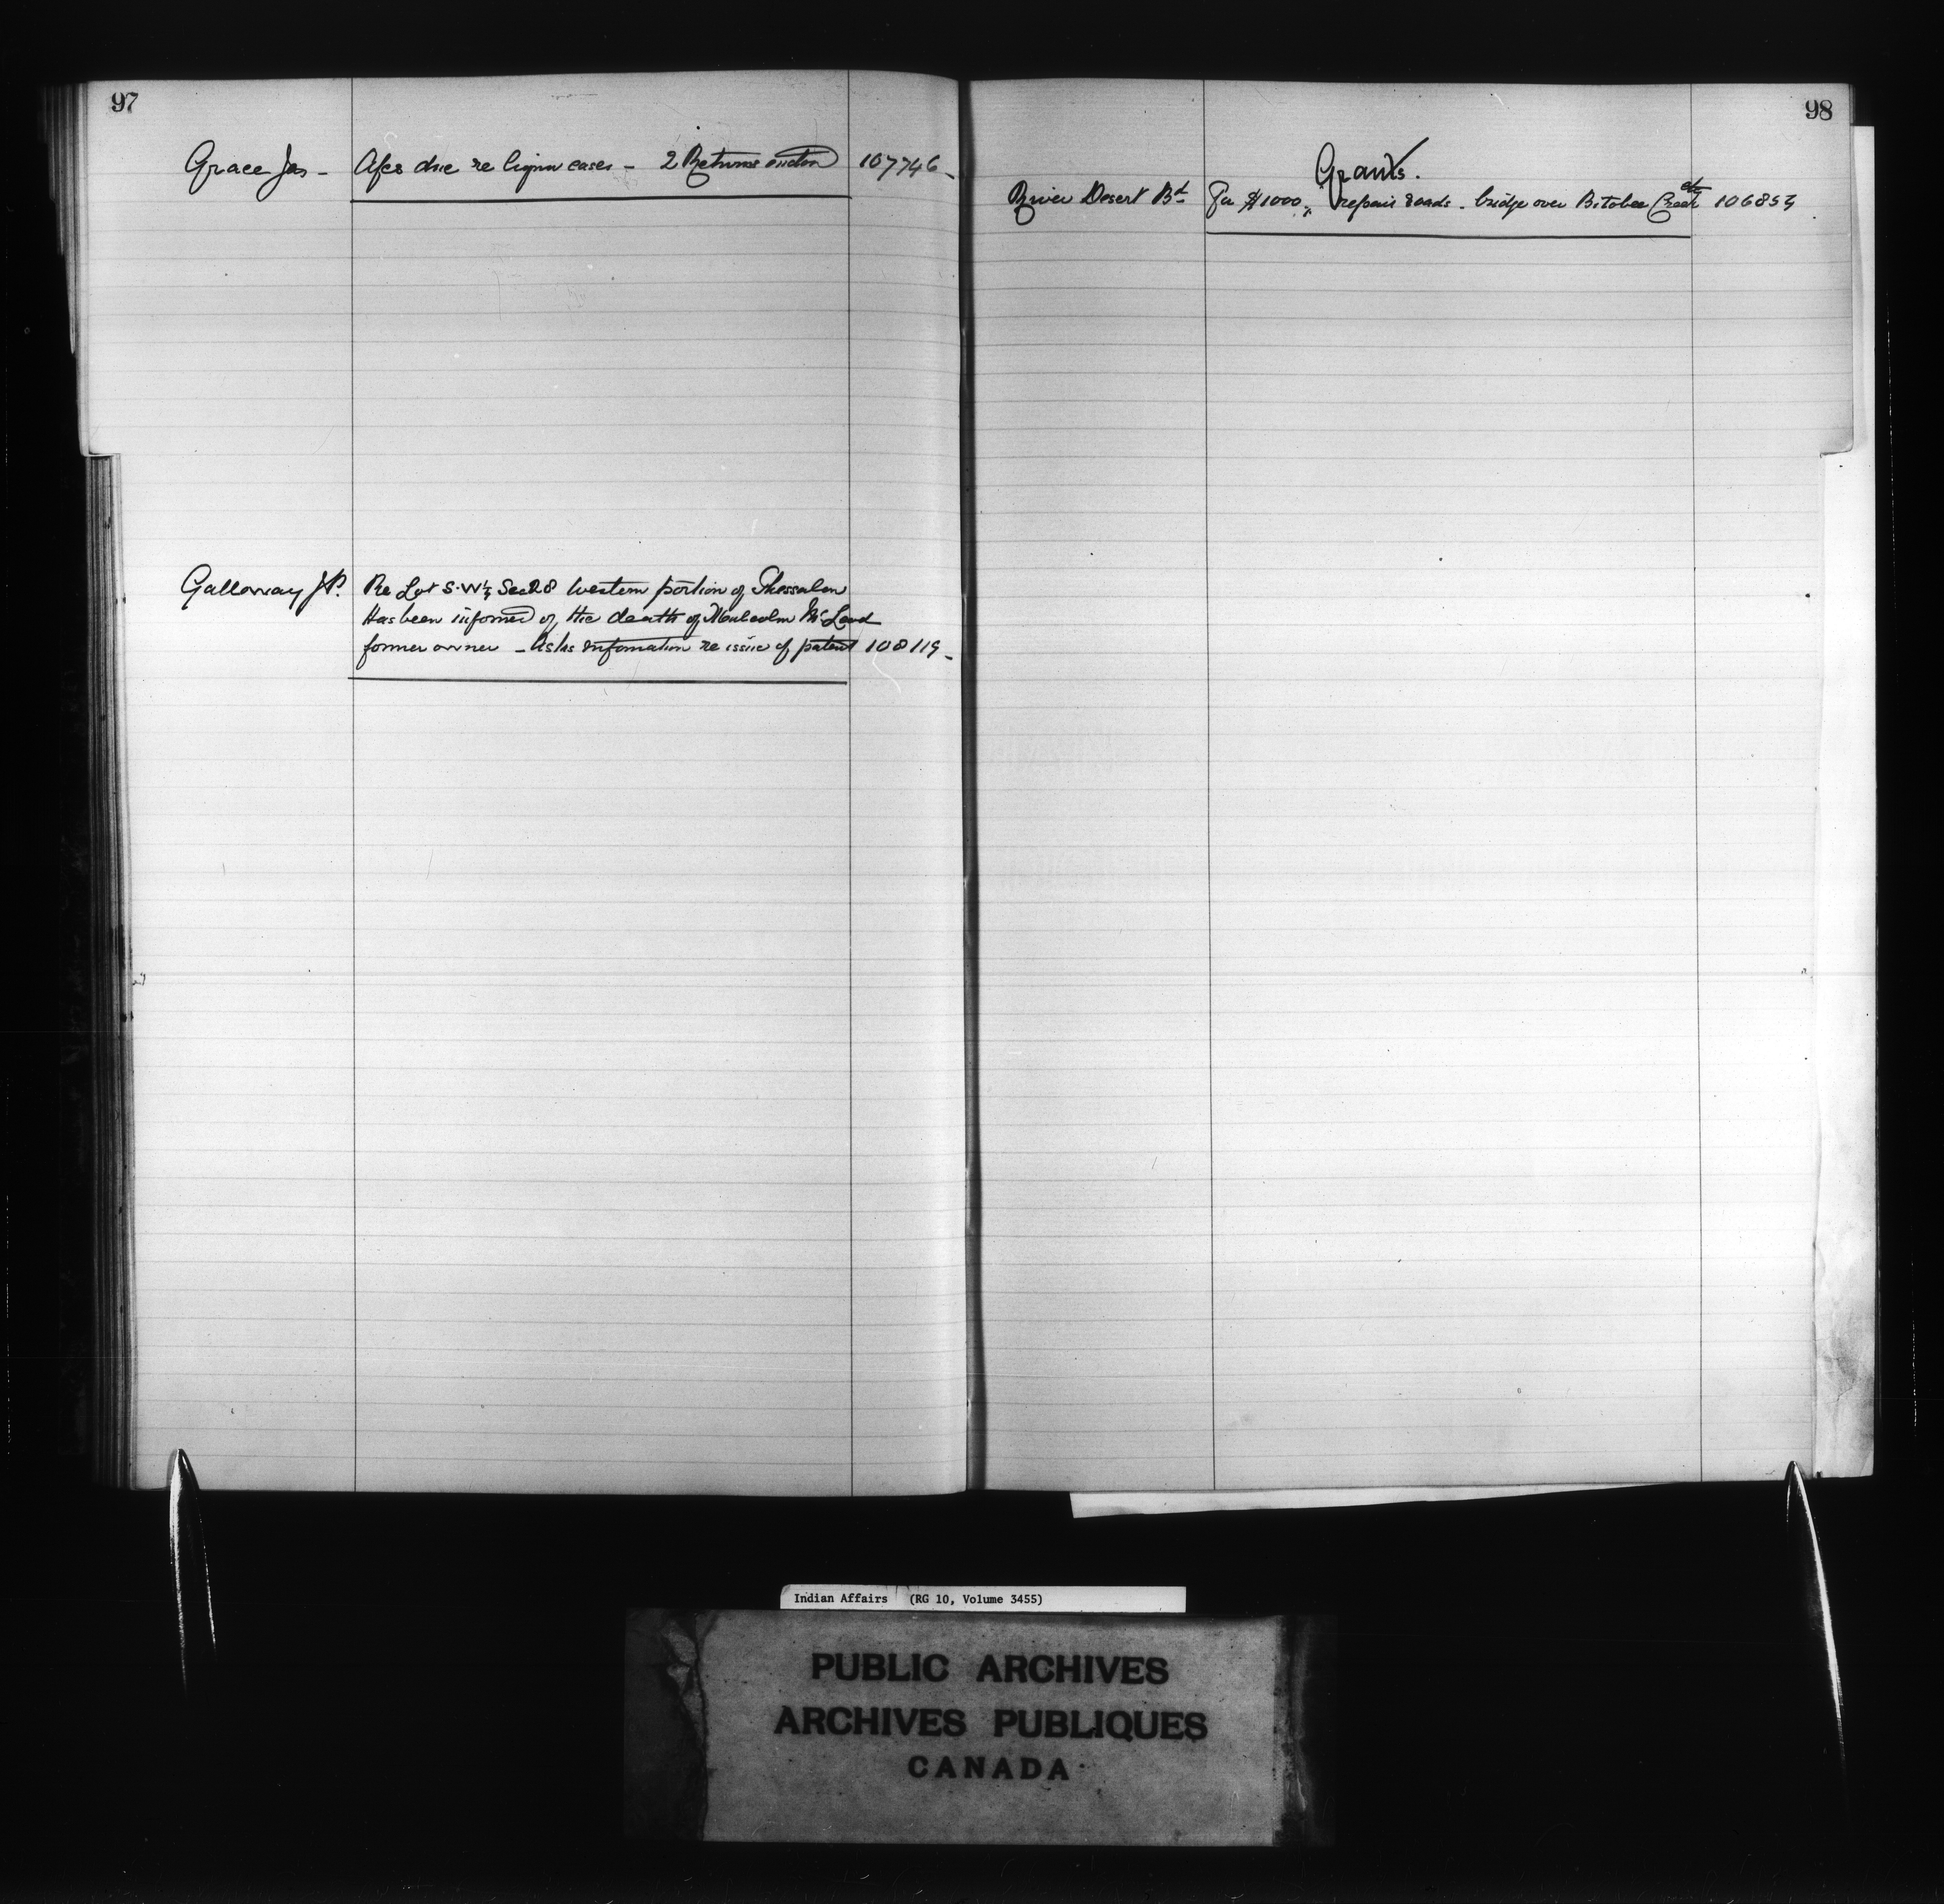 97
Grace Jas - Afcs due re liquor cases - 2 Returns 107746
Galloway J.P. Re Lot S.W¼ Sec 28 Western portion of Thessalon
Has been informed of the death of Malcolm McLeod
former owner - Asks information re issue of patent 108119
98
Grants.
River Desert Bd For $1000, repair roads - bridge over Bitobee Creek etc 106853
Indian Affairs (RG 10, Volume 3455)
PUBLIC ARCHIVES
ARCHIVES PUBLIQUES
CANADA